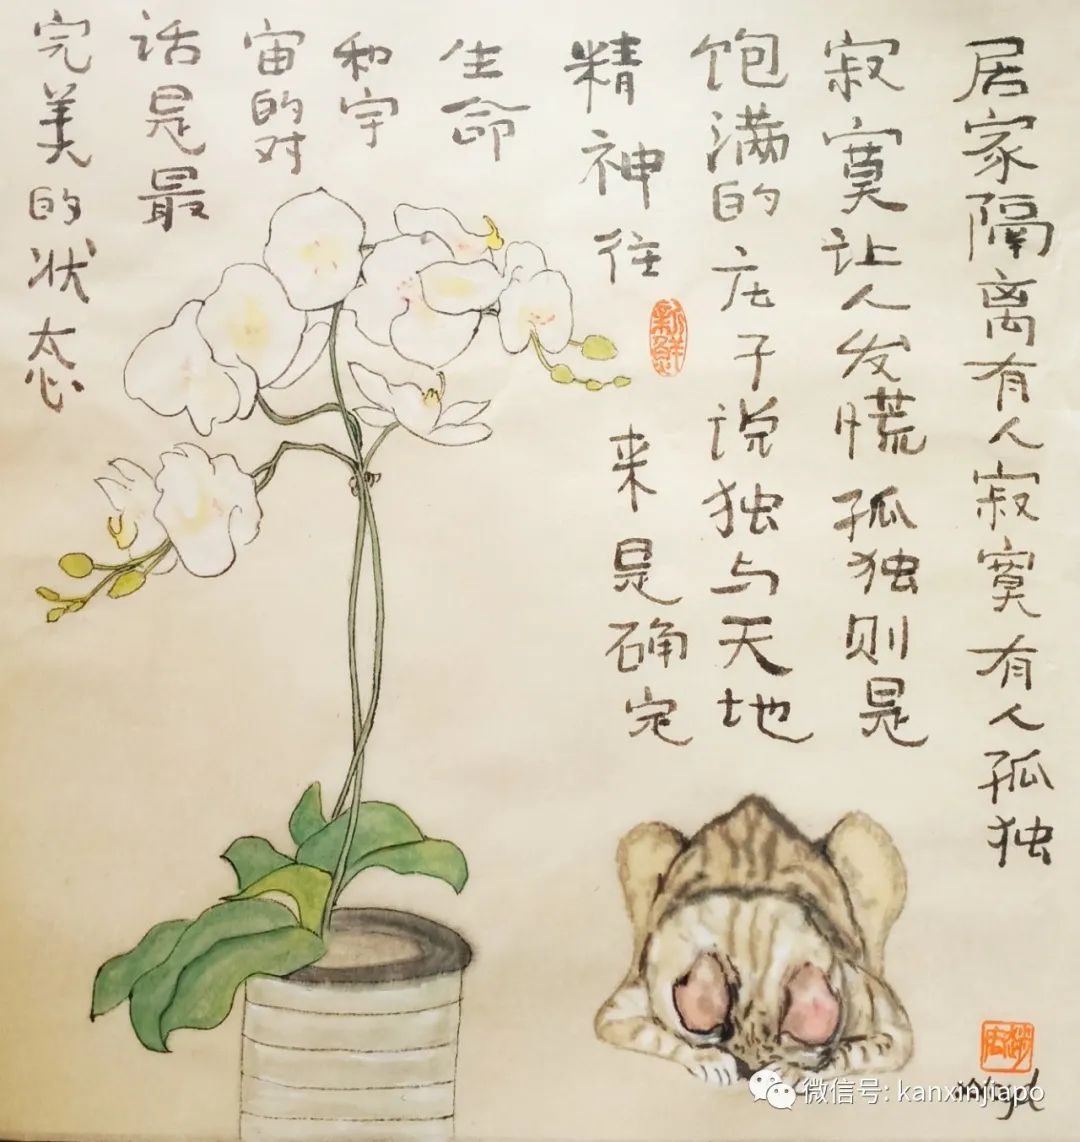 居家隔离有人寂寞有人孤独
寂寞让人发慌孤独则是
饱满的庄子说独与天地
精神往来是确定
生命
和宇
宙的对
话是最
完美的状态
微信号: kanxinjiapo